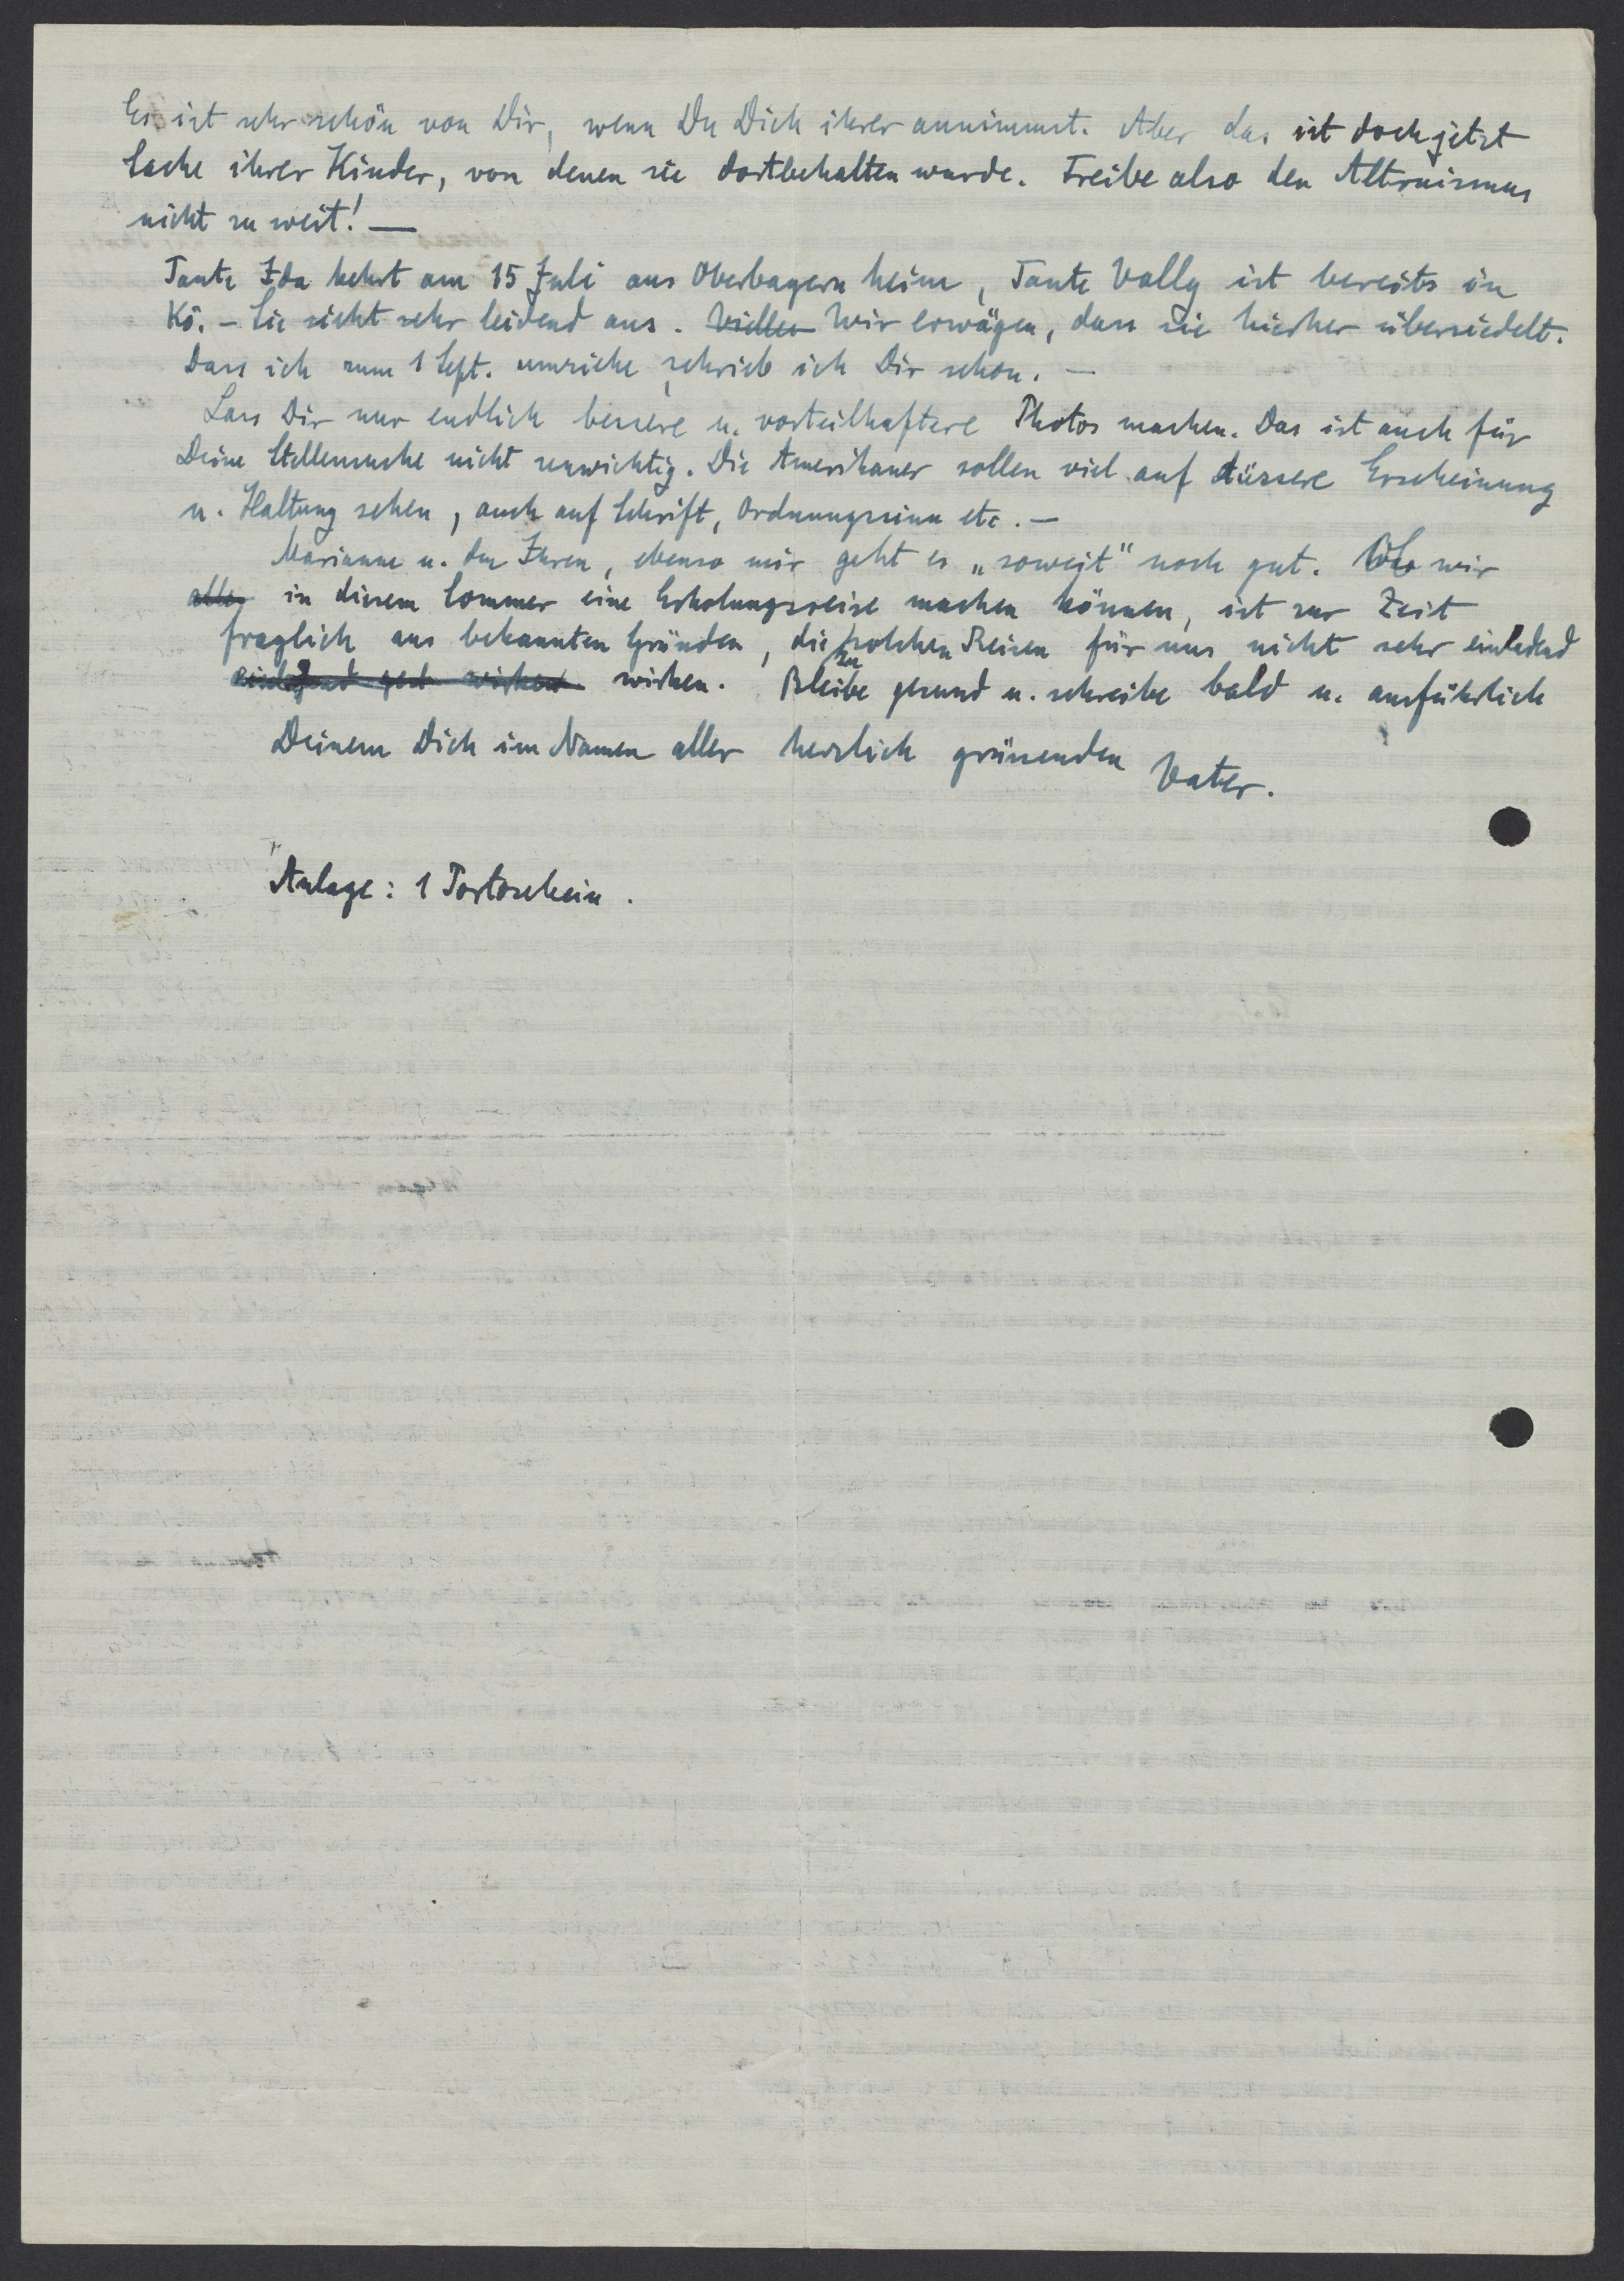 Es ist sehr schön von Dir, wenn Du Dich ihrer annimmst. Aber das ist doch jetzt
Sache ihrer Kinder, von denen sie dortbehalten wurde. Treibe also den Altruismus
nicht zu weit! —
Tante Ida kehrt am 15 Juli aus Oberbayern heim, Tante Vally ist bereits in
Kö. – Sie sieht sehr leidend aus. Wir erwägen, dass sie hierher übersiedelt.
Dass ich zum 1 Sept. umziehe, schrieb ich Dir schon. —
Lass Dir nur endlich bessere u. vorteilhaftere Photos machen. Das ist auch für
Deine Stellensuche nicht unwichtig. Die Amerikaner sollen viel auf äussere Erscheinung
u. Haltung sehen, auch auf Schrift, Ordnungssinn etc. —
Marianne u. den Ihren, ebenso mir geht es „soweit" noch gut. Ob wir
alle in diesem Sommer eine Erholungsreise machen können, ist zur Zeit
fraglich aus bekannten Gründen, die zu solchen Reisen für uns nicht sehr einladend
wirken. Bleibe gesund u. schreibe bald u. ausführlich
Deinem Dich im Namen aller herzlich grüssenden Vater.
Anlage: 1 Portoschein.